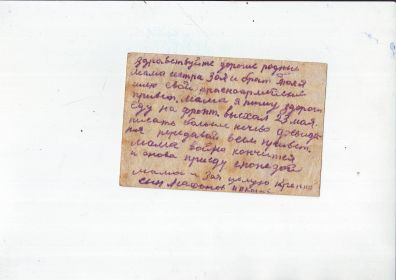 Здравствуйте дорогие родные
Мама сестра Зоя и брат Толя
шлю свой красноармейский
привет. Мама я пишу здоров
еду на фронт. выехал 23 мая.
писать больше нечево досвида
ня передавай всем привет.
Мама война кончится
и снова приеду
Мама и Зоя целую крепко
сын Агафонов